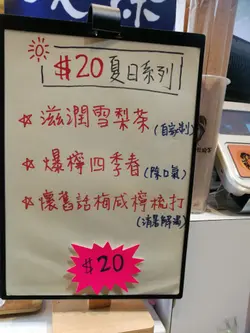 $20夏日系列
☆ 滋潤雪梨茶(自家制)
☆ 爆檸四季春(除口氣)
☆ 懷舊話梅咸檸梳打(消暑解渴)
$20